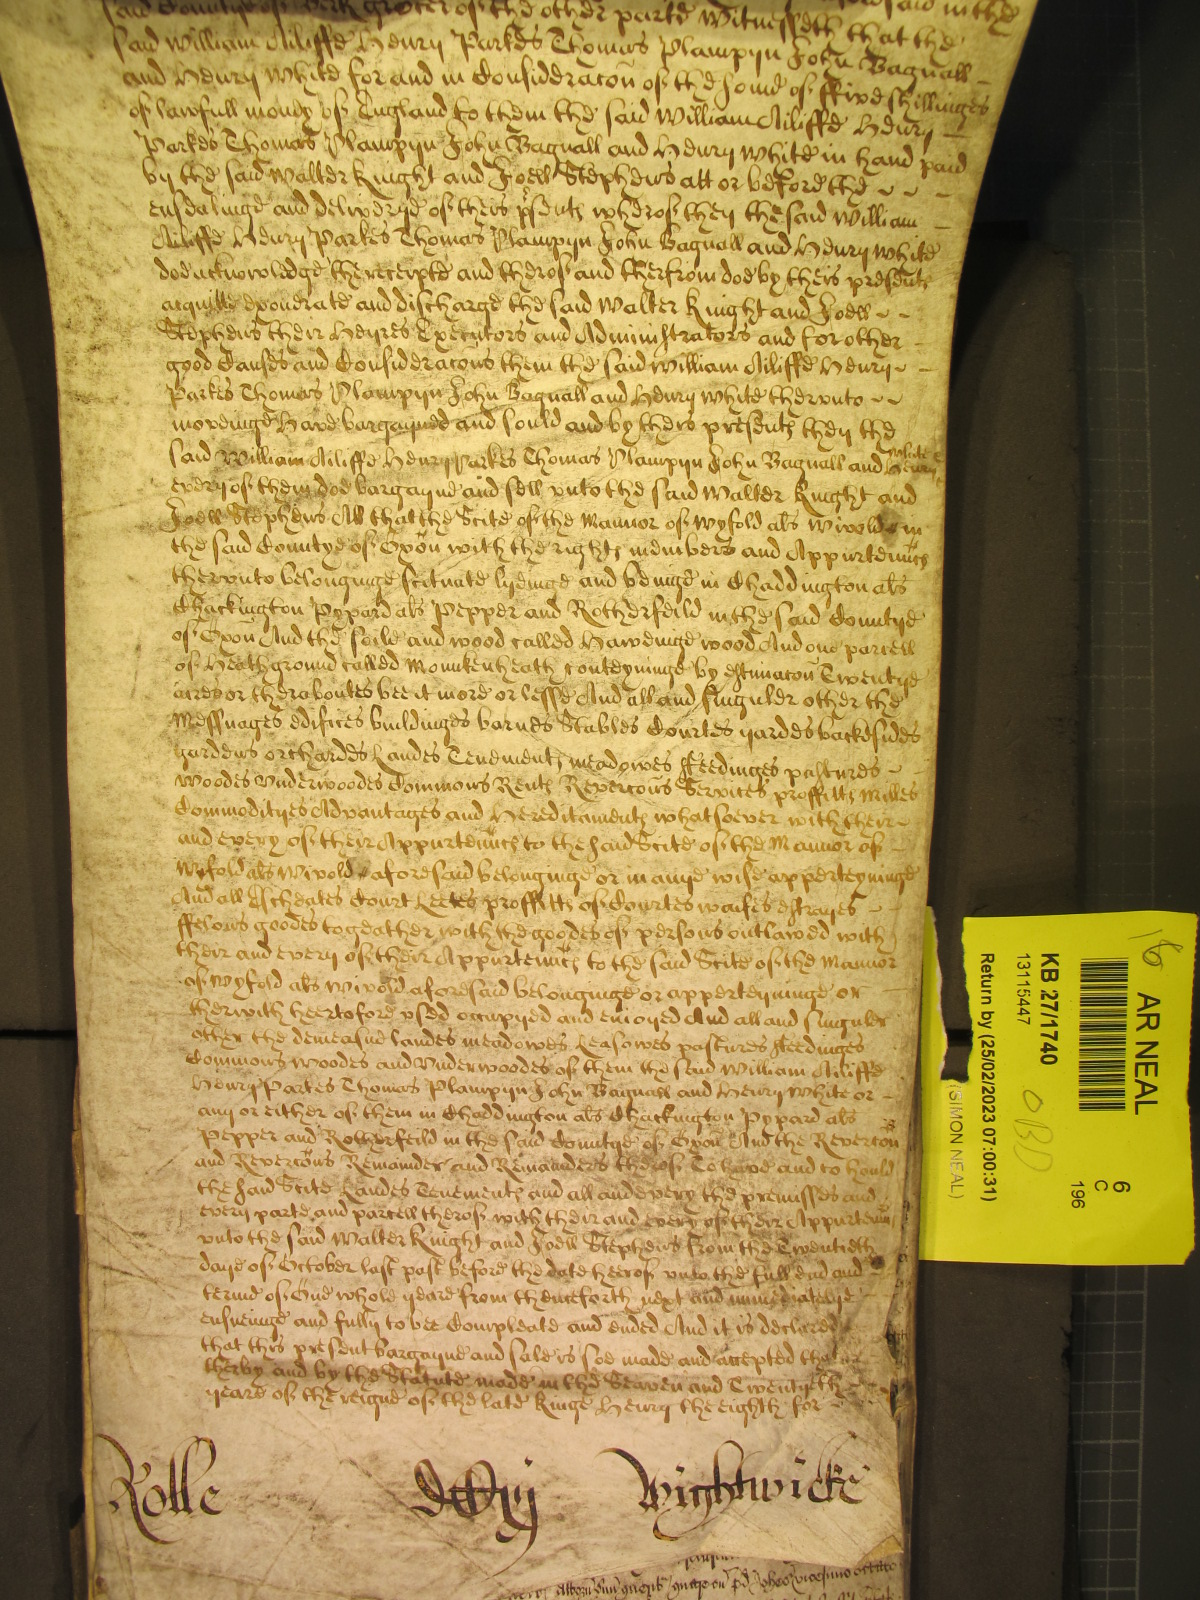 said Countye of Berk grocer of the other parte Witnesseth that the
said William Ailiffe Henry Parkes Thomas Plampyn John Bagnall
and Henry White for and in Consideracon of the some of ffive shillinges
of lawfull money of England to them the said William Ailiffe Henry
Parkes Thomas Plampyn John Bagnall and Henry White in hand paid
by the said Walter Knight and Joell Stephens att or before the
ensealinge and deliverye of theis psents wherof they the said William
Ailiffe Henry Parkes Thomas Plampyn John Bagnall and Henry White
doe acknowledge the receipte and therof and therfrom doe by theis presents
acquitte exonerate and discharge the said Walter Knight and Joell
Stephens their Heyres Executors and Administrators and for other
good Causes and Consideracons them the said William Ailiffe Henry
Parkes Thomas Plampyn John Bagnall and Henry White therunto
moveinge Have bargayned and sould and by theis presents they the
said William Ailiffe Henry Parkes Thomas Plampyn John Bagnall and Henry White
every of them doe bargayne and sell unto the said Walter Knight and
Joell Stephens All that the Scite of the Mannor of Wyfold als Wivold in
the said Countye of Oxon with the rights members and Appurtenncs
therunto belonginge scituate lyeinge and beinge in Chaddington als
Chackington Pypard als Pepper and Rotherfeild in the said Countye
of Oxon And the soile and wood called Haweinge wood And one parcell
of Heath ground called Mounkenheath conteyninge by estimacon Twentye
acres or theraboutes bee it more or lesse And all and singuler other the
Messuages edifices buildinges barnes Stables Courtes yardes backesides
gardens orchardes Landes Tenements meadowes ffeedinges pastures
Woodes Underwoodes Commons Rents Revercons Services proffitts Milles
Commodityes Advantages and Hereditaments whatsoever with their
and every of their Appurtenncs to the said Scite of the Mannor of
Wyfold als Wivold aforesaid belonginge or in anye wise apperteyninge
And all Escheates Court Leetes proffitts of Courtes waifes estrayes
ffelons goodes togeather with the goodes of persons outlawed with
their and every of their Appurtenncs to the said Scite of the Mannor
of Wyfold als Wivold aforesaid belonginge or apperteyninge or
therwith heertofore used occupyed and enioyed And all and singuler
other the demeasne landes meadowes Leasowes pastures ffeedinges
Commons Woodes and Underwoodes of them the said William Ailiffe
Henry Parkes Thomas Plampyn John Bagnall and Henry White or
any or either of them in Chaddington als Chackington Pypard als
Pepper and Rotherfeild in the said Countye of Oxon And the Revercon
and Revercons Remainder and Remainders therof To have and to hould
the said Scite Landes Tenements and all and every the premisses and
every parte and parcell therof with their and every of their Appurtenncs
unto the said Walter Knight and Joell Stephens from the Twentieth
daye of October last past before the date heerof unto the full end and
terme of One whole yeare from thenceforth next and immediatelye
ensueinge and fully to bee Compleate and ended And it is declared
that this present bargayne and sale is soe made and accepted that
therby and by the Statute made in the Seaven and Twentyeth
yeare of the reigne of the late Kinge Henry the eighth for
Rolle Wightwicke
AR NEAL
KB 27/1740
13115447
Return by (25/02/2023 07:00:31)
6
C
196
(SIMON NEAL)
16
OBD